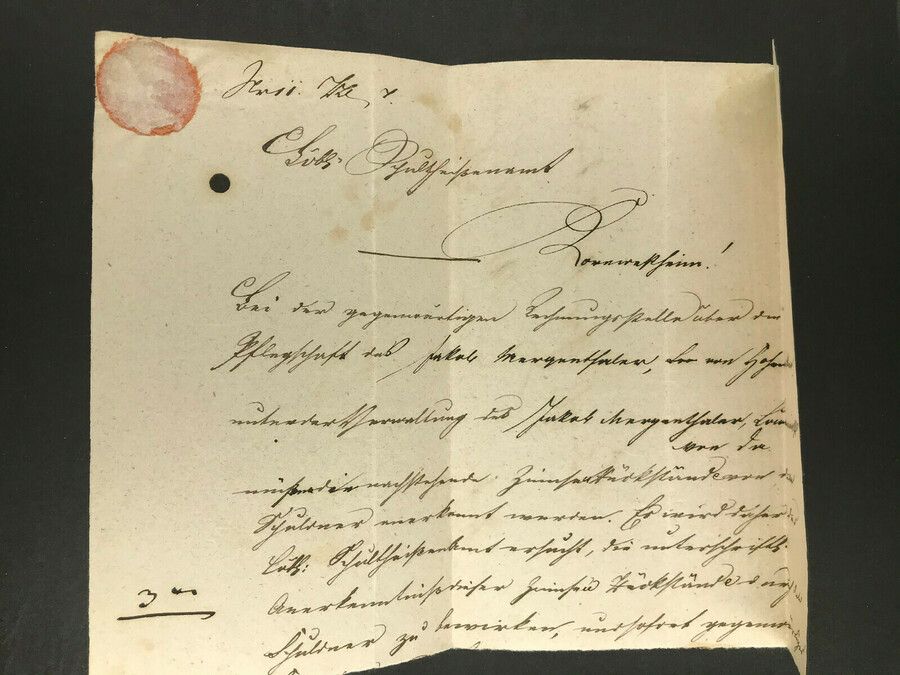 Löbl. Schultheißenamt
Kornwestheim!
Bei der gegenwärtigen Rechnungsstelle über die
Pflegschaft des Jakob Mergenthaler, von
unter der Verwaltung des Jakob Mergenthaler,
von da
müssen die nachstehende Zinsen Rückstände von
Schuldner anerkannt werden. Es wird daher
Löbl: Schultheißenamt ersucht, die unterschriftl.
Anerkenntniß dieser Zinsen Rückstände
Schuldner zu bewirken, und sofort